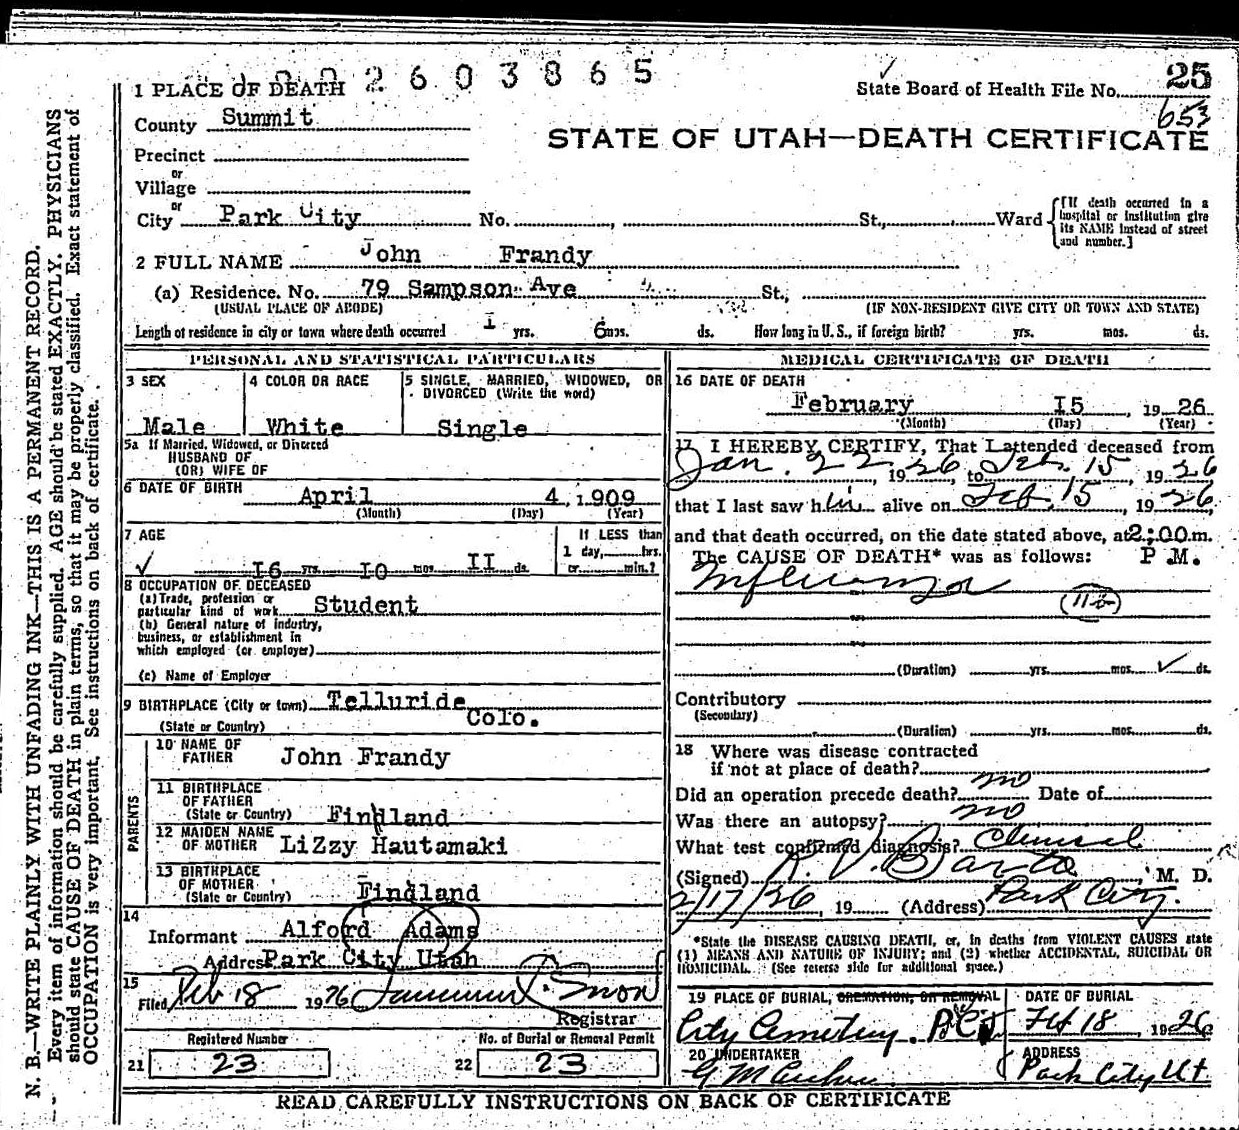 002603865
1 PLACE OF DEATH
State Board of Health File No. 25
653
County Summit
STATE OF UTAH—DEATH CERTIFICATE
Precinct
or
Village
or
City Park City No. St., Ward
[If death occurred in a hospital or institution give its NAME instead of street and number.]
2 FULL NAME John Frandy
(a) Residence. No. 79 Sampson Ave St.,
(USUAL PLACE OF ABODE) (IF NON-RESIDENT GIVE CITY OR TOWN AND STATE)
Length of residence in city or town where death occurred 1 yrs. 6 mos. ds. How long in U. S., if foreign birth? yrs. mos. ds.
PERSONAL AND STATISTICAL PARTICULARS
3 SEX
Male
4 COLOR OR RACE
White
5 SINGLE, MARRIED, WIDOWED, OR
DIVORCED (Write the word)
Single
5a If Married, Widowed, or Divorced
HUSBAND OF
(OR) WIFE OF
6 DATE OF BIRTH April 4, 1909
(Month) (Day) (Year)
7 AGE
I6 yrs. I0 mos. II ds.
If LESS than
1 day, hrs.
or min.?
8 OCCUPATION OF DECEASED
(a) Trade, profession or
particular kind of work Student
(b) General nature of industry,
business, or establishment in
which employed (or employer)
(c) Name of Employer
9 BIRTHPLACE (City or town) Telluride
Colo.
(State or Country)
PARENTS
10 NAME OF
FATHER John Frandy
11 BIRTHPLACE
OF FATHER
(State or Country) Findland
12 MAIDEN NAME
OF MOTHER LiZzy Hautamaki
13 BIRTHPLACE
OF MOTHER
(State or Country) Findland
14
Informant Alford Adams
Address Park City Utah
15
Filed Feb 18 1926 Snow
Registrar
Registered Number
21 23
No. of Burial or Removal Permit
22 23
MEDICAL CERTIFICATE OF DEATH
16 DATE OF DEATH
February I5, 1926
(Month) (Day) (Year)
17 I HEREBY CERTIFY, That I attended deceased from
Jan. 22, 1926, to Feb. 15, 1926
that I last saw him alive on Feb. 15, 1926,
and that death occurred, on the date stated above, at 2:00 m.
The CAUSE OF DEATH* was as follows: P.M.
Influenza
(11b)
(Duration) yrs. mos. ds.
Contributory
(Secondary)
(Duration) yrs. mos. ds.
18 Where was disease contracted
if not at place of death?
Did an operation precede death? no Date of
Was there an autopsy? no
What test confirmed diagnosis? Clinical
(Signed) R. V. Barta, M. D.
2/17/26, 19 (Address) Park City.
*State the DISEASE CAUSING DEATH, or, in deaths from VIOLENT CAUSES state
(1) MEANS AND NATURE OF INJURY; and (2) whether ACCIDENTAL, SUICIDAL OR
HOMICIDAL. (See reverse side for additional space.)
19 PLACE OF BURIAL, CREMATION, OR REMOVAL
City Cemetery. P.C.
DATE OF BURIAL
Feb 18, 1926
20 UNDERTAKER
G M
ADDRESS
Park City Ut.
READ CAREFULLY INSTRUCTIONS ON BACK OF CERTIFICATE
N. B.—WRITE PLAINLY WITH UNFADING INK—THIS IS A PERMANENT RECORD.
Every item of information should be carefully supplied. AGE should be stated EXACTLY. PHYSICIANS
should state CAUSE OF DEATH in plain terms, so that it may be properly classified. Exact statement of
OCCUPATION is very important. See instructions on back of certificate.